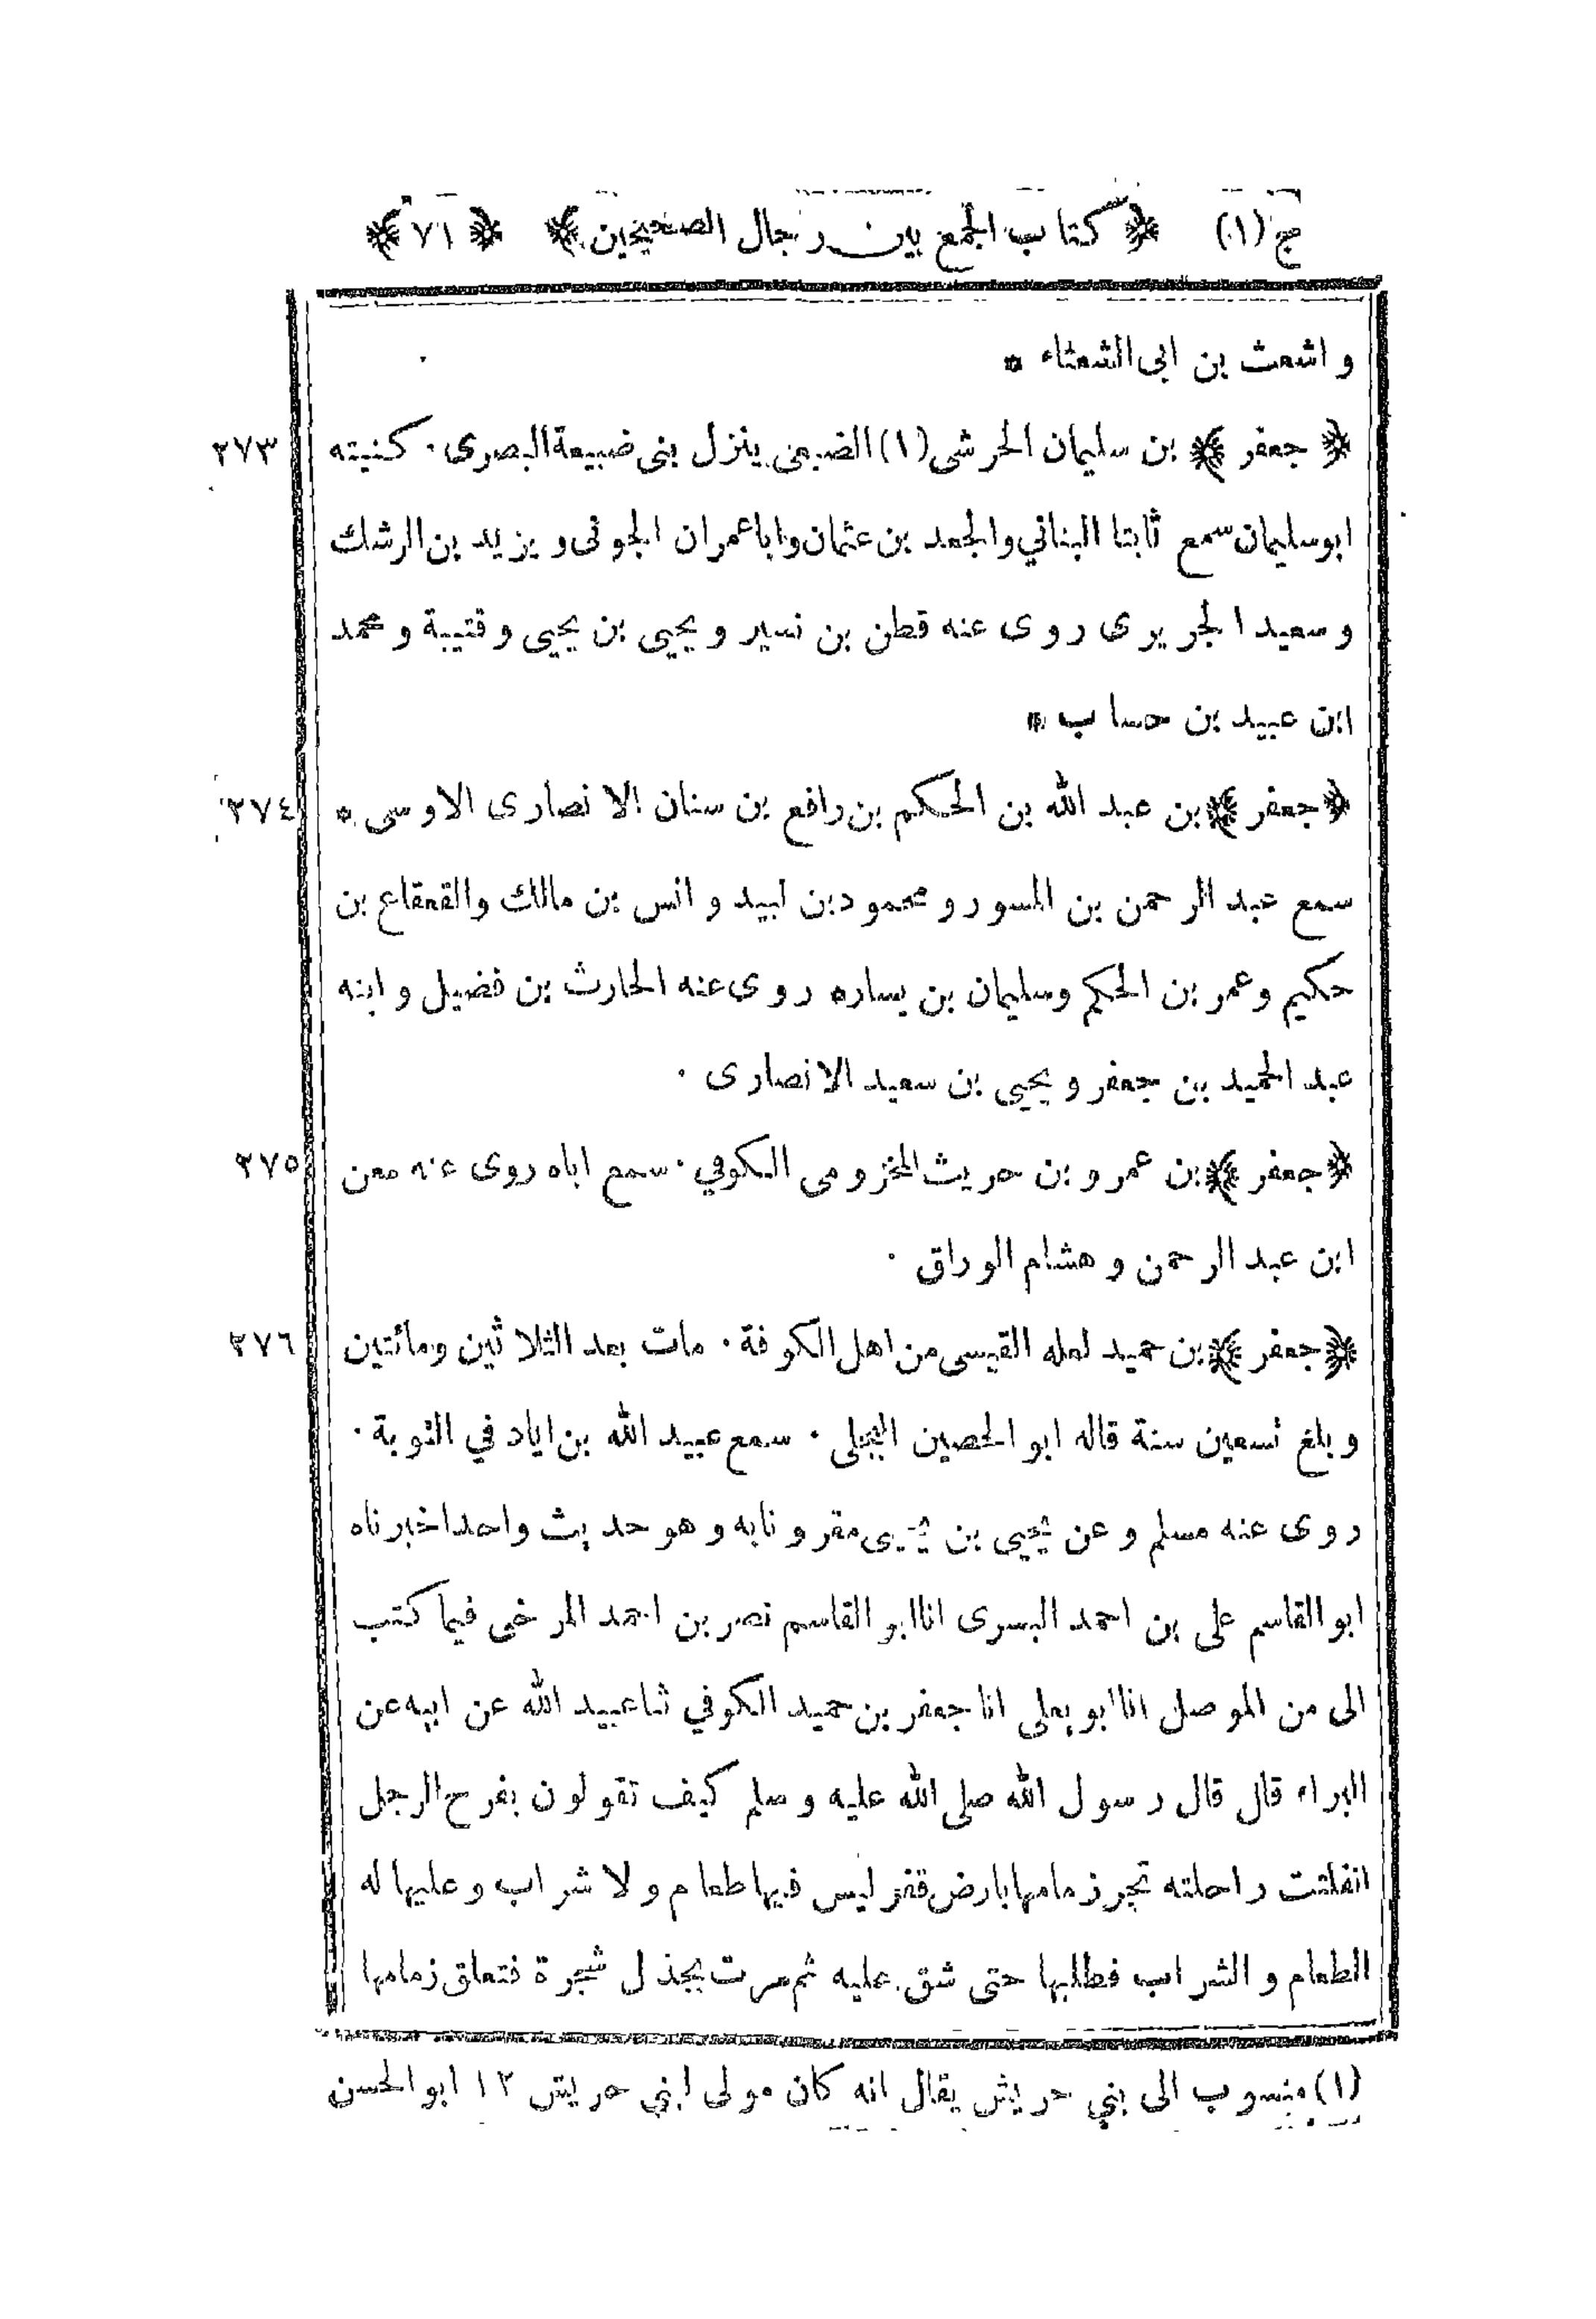 ج (١) ﴿ كتاب الجمع بين رجال الصحيحين ﴾ ﴿ ٧١ ﴾
و اشعث بن ابى الشعثاء *
﴿ جعفر ﴾ بن سليمان الحرشى (١) الضبعى ينزل بنى ضبيعة البصرى ٠ كنيته ٢٧٣
ابو سليمان سمع ثابتا البناني والجعد بن عثمان وابا عمران الجونى ويزيد بن الرشك
و سعيد الجريرى روى عنه قطن بن نسير و يحيى بن يحيى و قتيبة و محمد
ابن عبيد بن حساب *
﴿ جعفر ﴾ بن عبد الله بن الحكم بن رافع بن سنان الانصارى الاوسى * ٢٧٤
سمع عبد الرحمن بن المسور و محمود بن لبيد و انس بن مالك والقعقاع بن
حكيم وعمر بن الحكم وسليمان بن يسار* روى عنه الحارث بن فضيل و ابنه
عبد الحميد بن جعفر و يحيى بن سعيد الانصارى ٠
﴿ جعفر ﴾ بن عمرو بن حريث المخزومى الكوفي ٠ سمع اباه روى عنه معن ٢٧٥
ابن عبد الرحمن و هشام الوراق ٠
﴿ جعفر ﴾ بن حميد لعله القيسى من اهل الكوفة ٠ مات بعد الثلاثين ومائتين ٢٧٦
و بلغ تسعين سنة قاله ابو الحصين البجلى ٠ سمع عبيد الله بن اياد في التوبة ٠
روى عنه مسلم و عن يحيى بن يحيى مقرونا به و هو حديث واحد اخبرناه
ابو القاسم على بن احمد البسرى انا ابو القاسم نصر بن احمد المرخى فيما كتب
الى من الموصل انا ابو يعلى انا جعفر بن حميد الكوفي ثنا عبيد الله عن ابيه عن
البراء قال قال رسول الله صلى الله عليه و سلم كيف تقولون بفرح الرجل
انفلتت راحلته تجر زمامها بارض قفر ليس فيها طعام و لا شراب و عليها له
الطعام و الشراب فطلبها حتى شق عليه ثم مرت بجذل شجرة فتعلق زمامها
(١) منسوب الى بني حريش يقال انه كان مولى لبني حريش ١٢ ابو الحسن